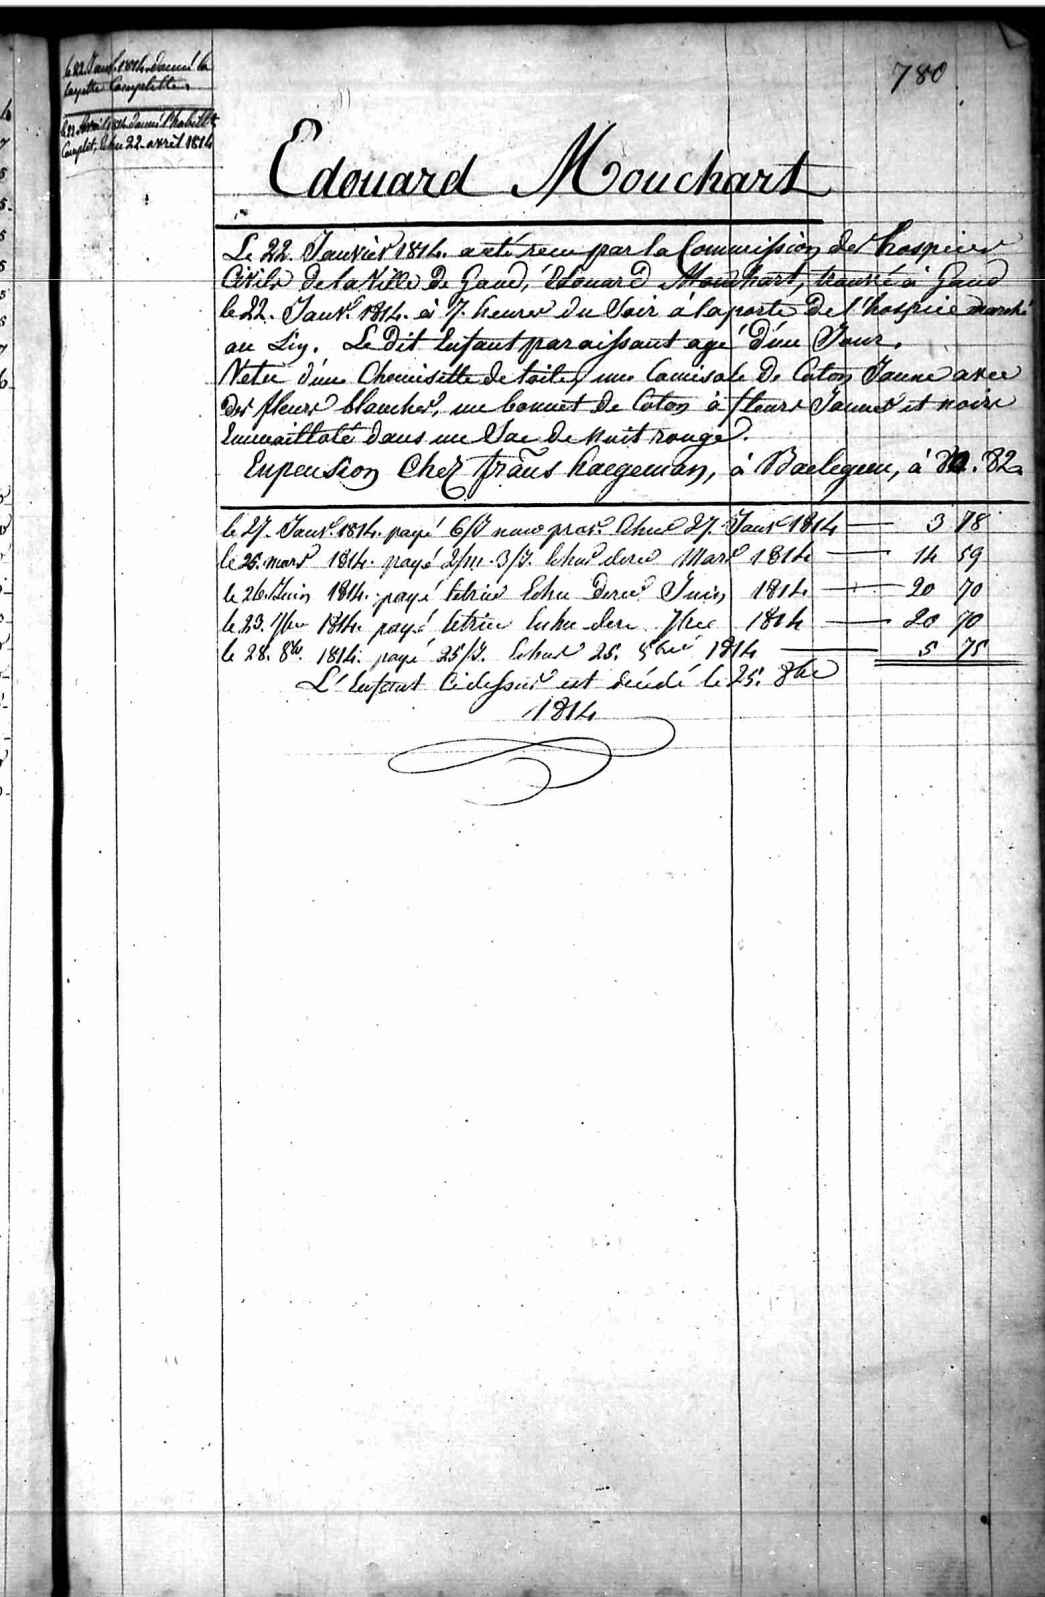 780
le 22. Janv. 1814. donné la
layette Complette.
le 22. Avril 1814 donné l'habillt
Complet, Echu 22. avril 1814
Edouard Mouchart
Le 22. Janvier 1814. a été reçu par la Commission des hospices
Civils de la Ville de Gand, Edouard Mouchart, trouvé à Gand
le 22. Janvr. 1814. à 7. heures du Soir à la porte De l'hospice marché
au Lin. Le Dit Enfant paraissant agé d'un Jour.
Vetu d'une Chemisette de toile, une Camisole De Coton Jaune avec
des fleurs blanches, un bonnet de Coton à fleurs Jaunes et noirs
Emmailloté dans un Sac de nuit rouge.
En pension Chez frans haegeman, à Baelegem, à . 82.
le 27. Janvr. 1814. payé 6/J Echus 27. Janvr 1814 — 3 78
le 26. mars 1814. payé 2/m. 3/J. Echus derer Mars 1814 — 14 59
le 26. Juin 1814. payé letrim Echu Derer Juin 1814 — 20 70
le 23. 7bre 1814. payé letrim Echu dere 7bre 1814 — 20 70
le 28. 8bre. 1814. payé 25/J. Echus 25. 8bre 1814 — 5 75
L'Enfant Cidessus est décédé le 25. 8bre
1814